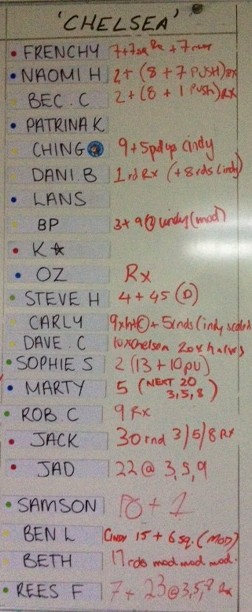 'CHELSEA'
FRENCHY 7+7 8x +7
NAOMI H 2+ (8+7 PUSH) Rx
BEC. C 2+(8+1 PUSH) Rx
PATRINA K
CHING 9+5 pullups cindy
DANI. B 1 rd Rx (+8 rds Cindy)
LANS
BP 3+9 cindy (mod)
K
OZ Rx
STEVE H 4+45
CARLY + 5 rnds (cindy scaled
DAVE. C 10xChelsea 20x
SOPHIE S 2 (13+10 PU)
MARTY 5 (NEXT 20
3,5,8)
ROB. C 9 Rx
JACK 30 rnd 3/5/8 Rx
JAD 22@ 3,5,9
SAMSON 18+1
BEN L 15+6 sq. (MOD)
BETH 17 rds mod mod mod.
REES F 7+23@3,5,7 Rx